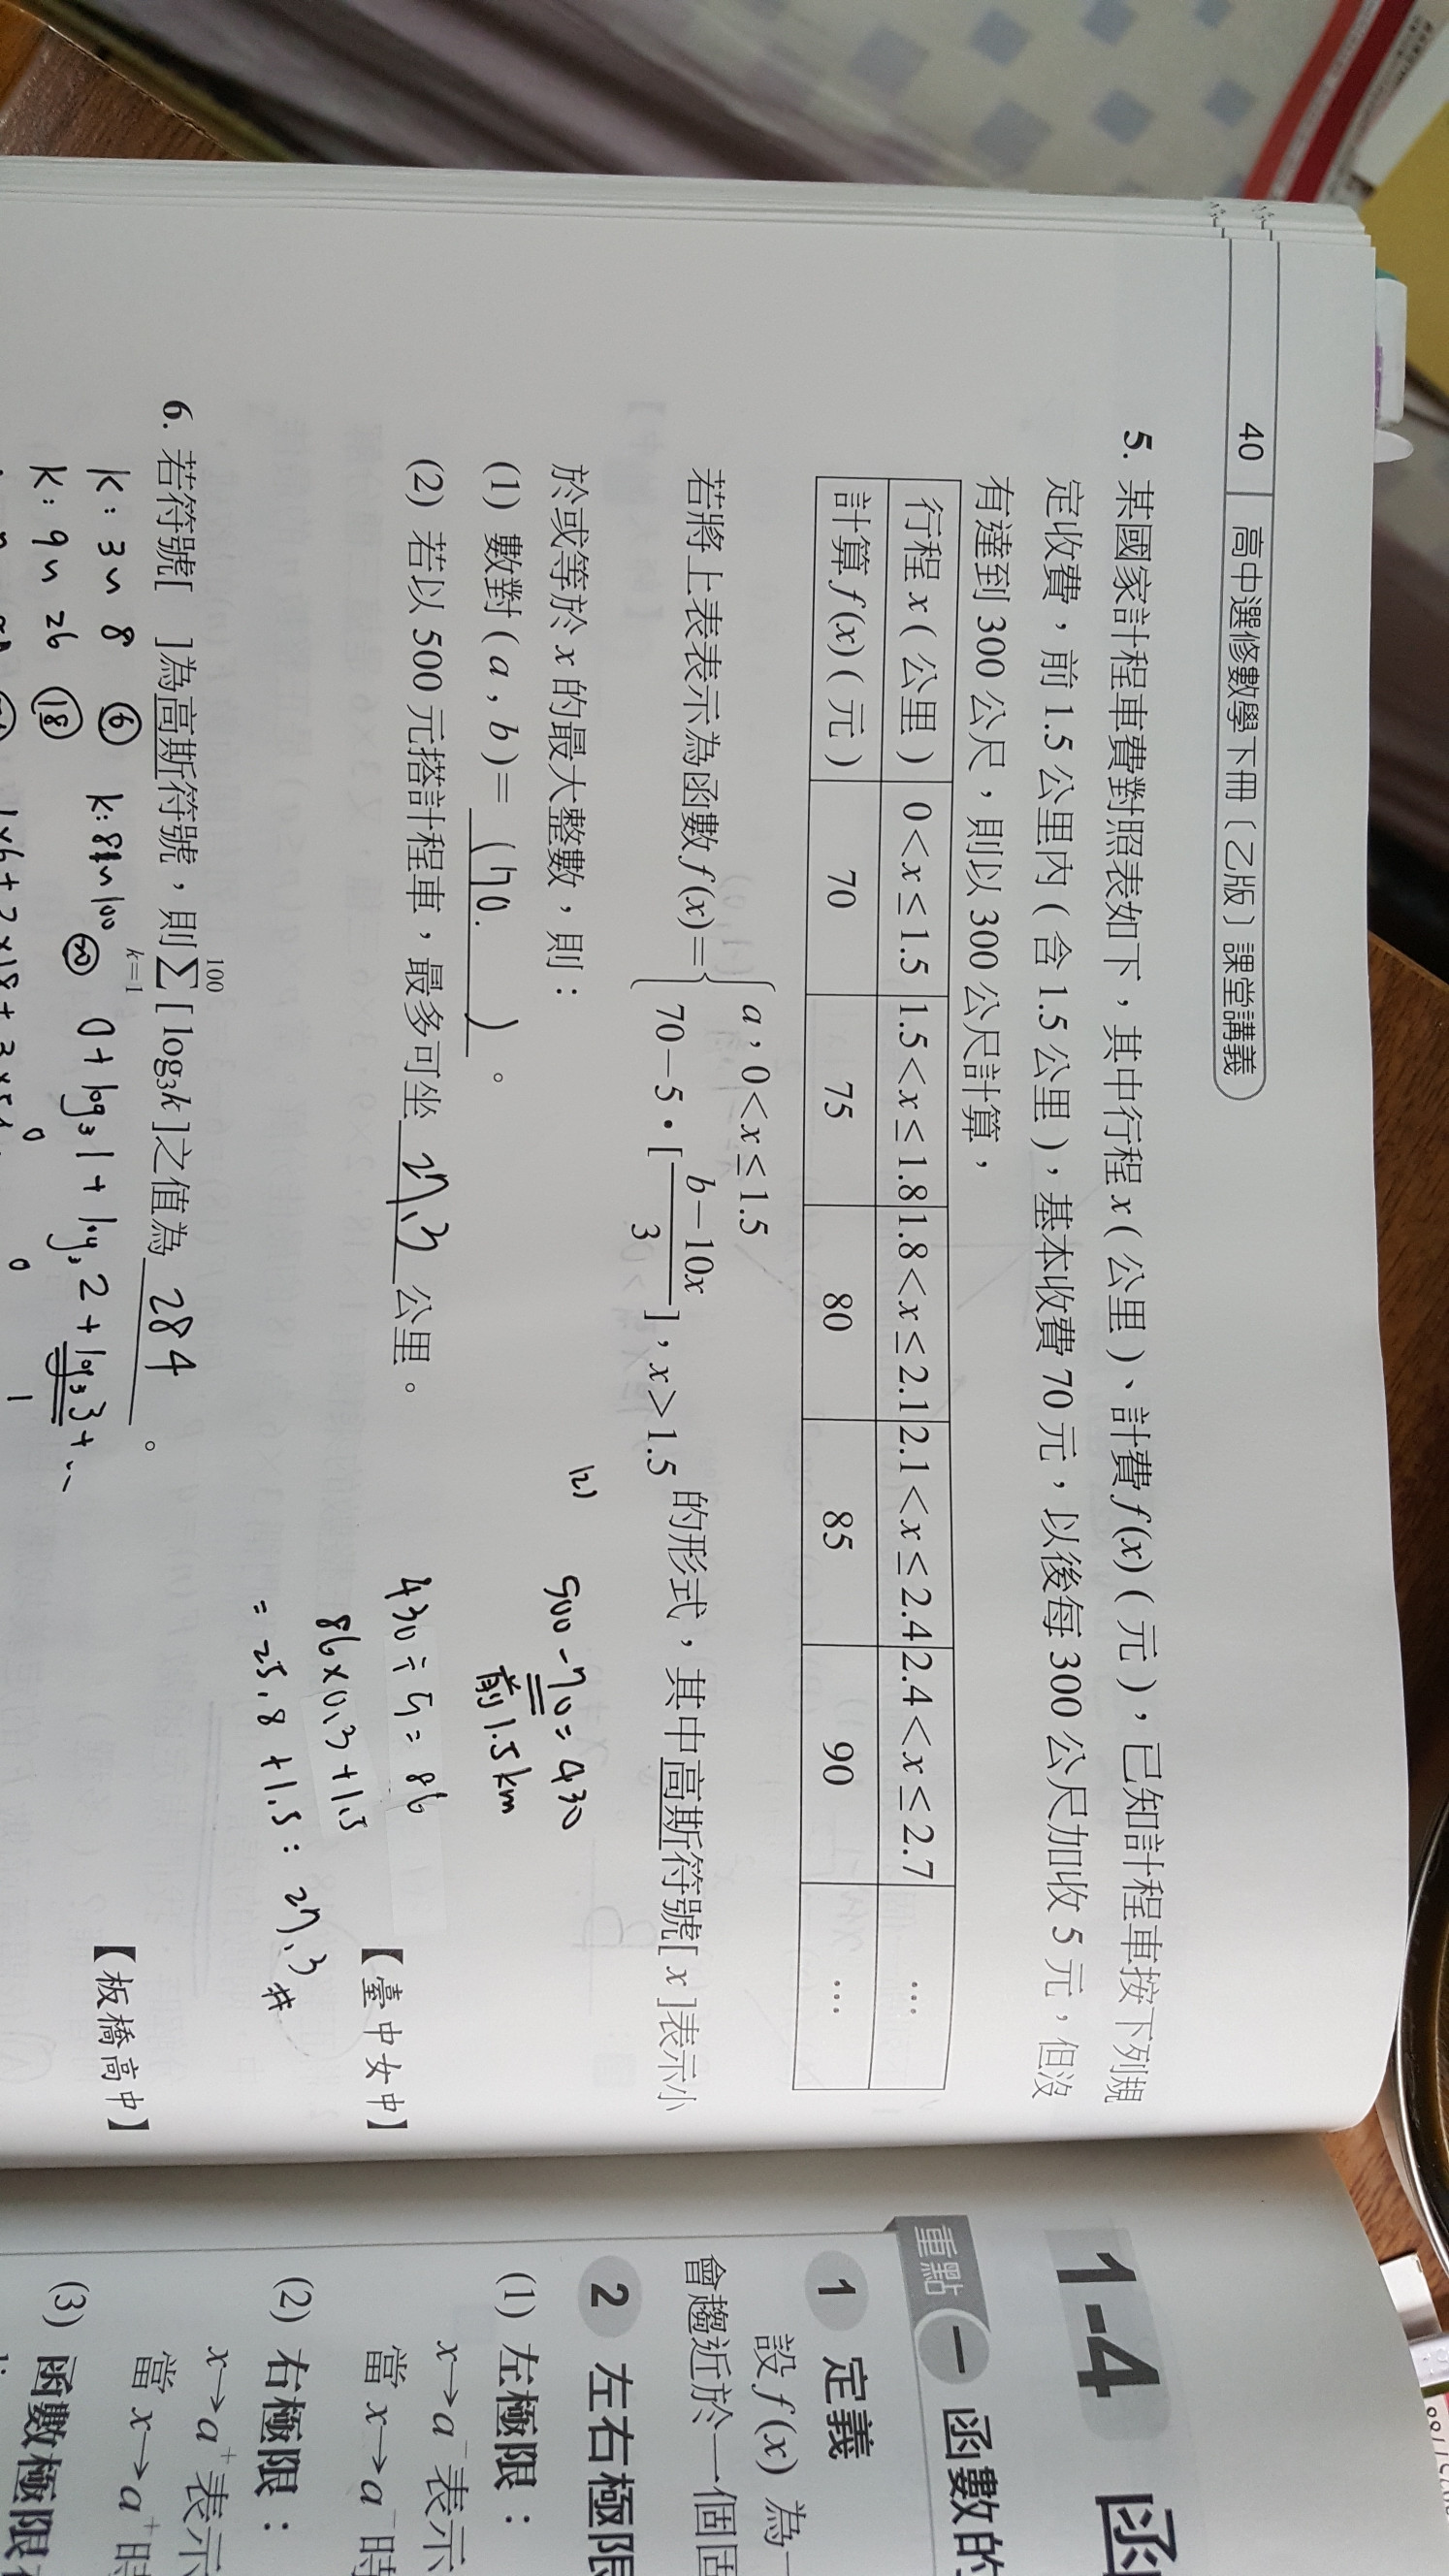 40 高中選修數學下冊〔乙版〕課堂講義
5. 某國家計程車費對照表如下，其中行程 x（公里）、計費 f(x)（元），已知計程車按下列規
定收費，前 1.5 公里內（含 1.5 公里），基本收費 70 元，以後每 300 公尺加收 5 元，但沒
有達到 300 公尺，則以 300 公尺計算，
行程 x（公里） 0<x≤1.5 1.5<x≤1.8 1.8<x≤2.1 2.1<x≤2.4 2.4<x≤2.7 …
計算 f(x)（元） 70 75 80 85 90 …
a，0<x≤1.5
若將上表表示為函數 f(x)={ 70−5·[(b−10x)/3]，x>1.5 的形式，其中高斯符號[x]表示小
於或等於 x 的最大整數，則：
(1) 數對(a，b)=(70. )。
(2) 若以 500 元搭計程車，最多可坐 27.3 公里。
【臺中女中】
(2) 500-70=430
前1.5km
430÷5=86
86×0.3+1.5
=25.8+1.5=27.3#
6. 若符號[ ]為高斯符號，則∑_{k=1}^{100}[log₃k]之值為 284。
【板橋高中】
k:3~8 ⑥ k:81~100 ⑳ 0+log₃1+log₃2+log₃3+..
k:9~26 ⑱
1×6+2×18+3×54
0 0 1
1-4 函
重點 一 函數的
1 定義
設 f(x) 為一
會趨近於一個固
2 左右極限
(1) 左極限：
x→a⁻表示
當 x→a⁻時
(2) 右極限：
x→a⁺表示
當 x→a⁺時
(3) 函數極限